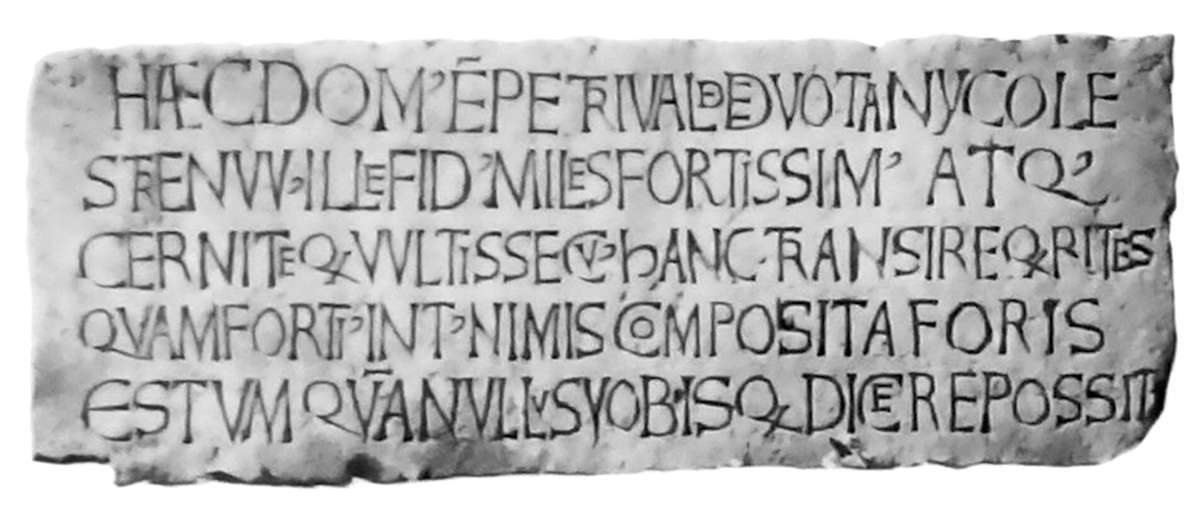 HÆC DOM’ ĒPETRI VALDE DVOTAN Y COLE
STRENVV’ ILLE FID’ MILES FORTISSIM’ ATQ’
CERNITE Q VVLTIS SECV’ hANC TRANSIRE QRITES
QVAM FORTI’ INT’ NIMIS COMPOSITA FORIS
EST VMQVĀ NVLLVS VOBIS Q DICERE POSSIT